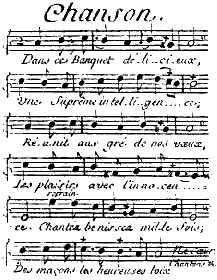 Chanson.
Dans ce Banquet dé-li-ci-eux,
Une Suprême in-tel-li-gen----ce,
Ré-u-nit aux gré de nos vœux,
Les plaisirs avec l'in-no-cen-----
refrain.
ce. Chantez be-nissez mil-le fois
Le Chœur.
Des maçons les heureuses loix